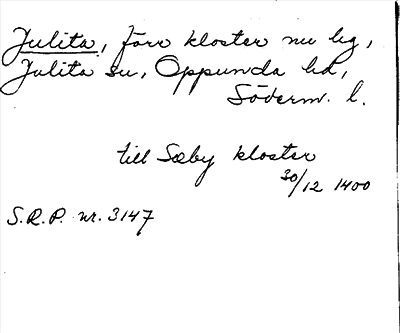 Julita, förr kloster nu lzg,
Julita sn, Oppunda hd,
Söderm. l.
till Sæby kloster
30/12 1400
S.R.P. nr. 3147